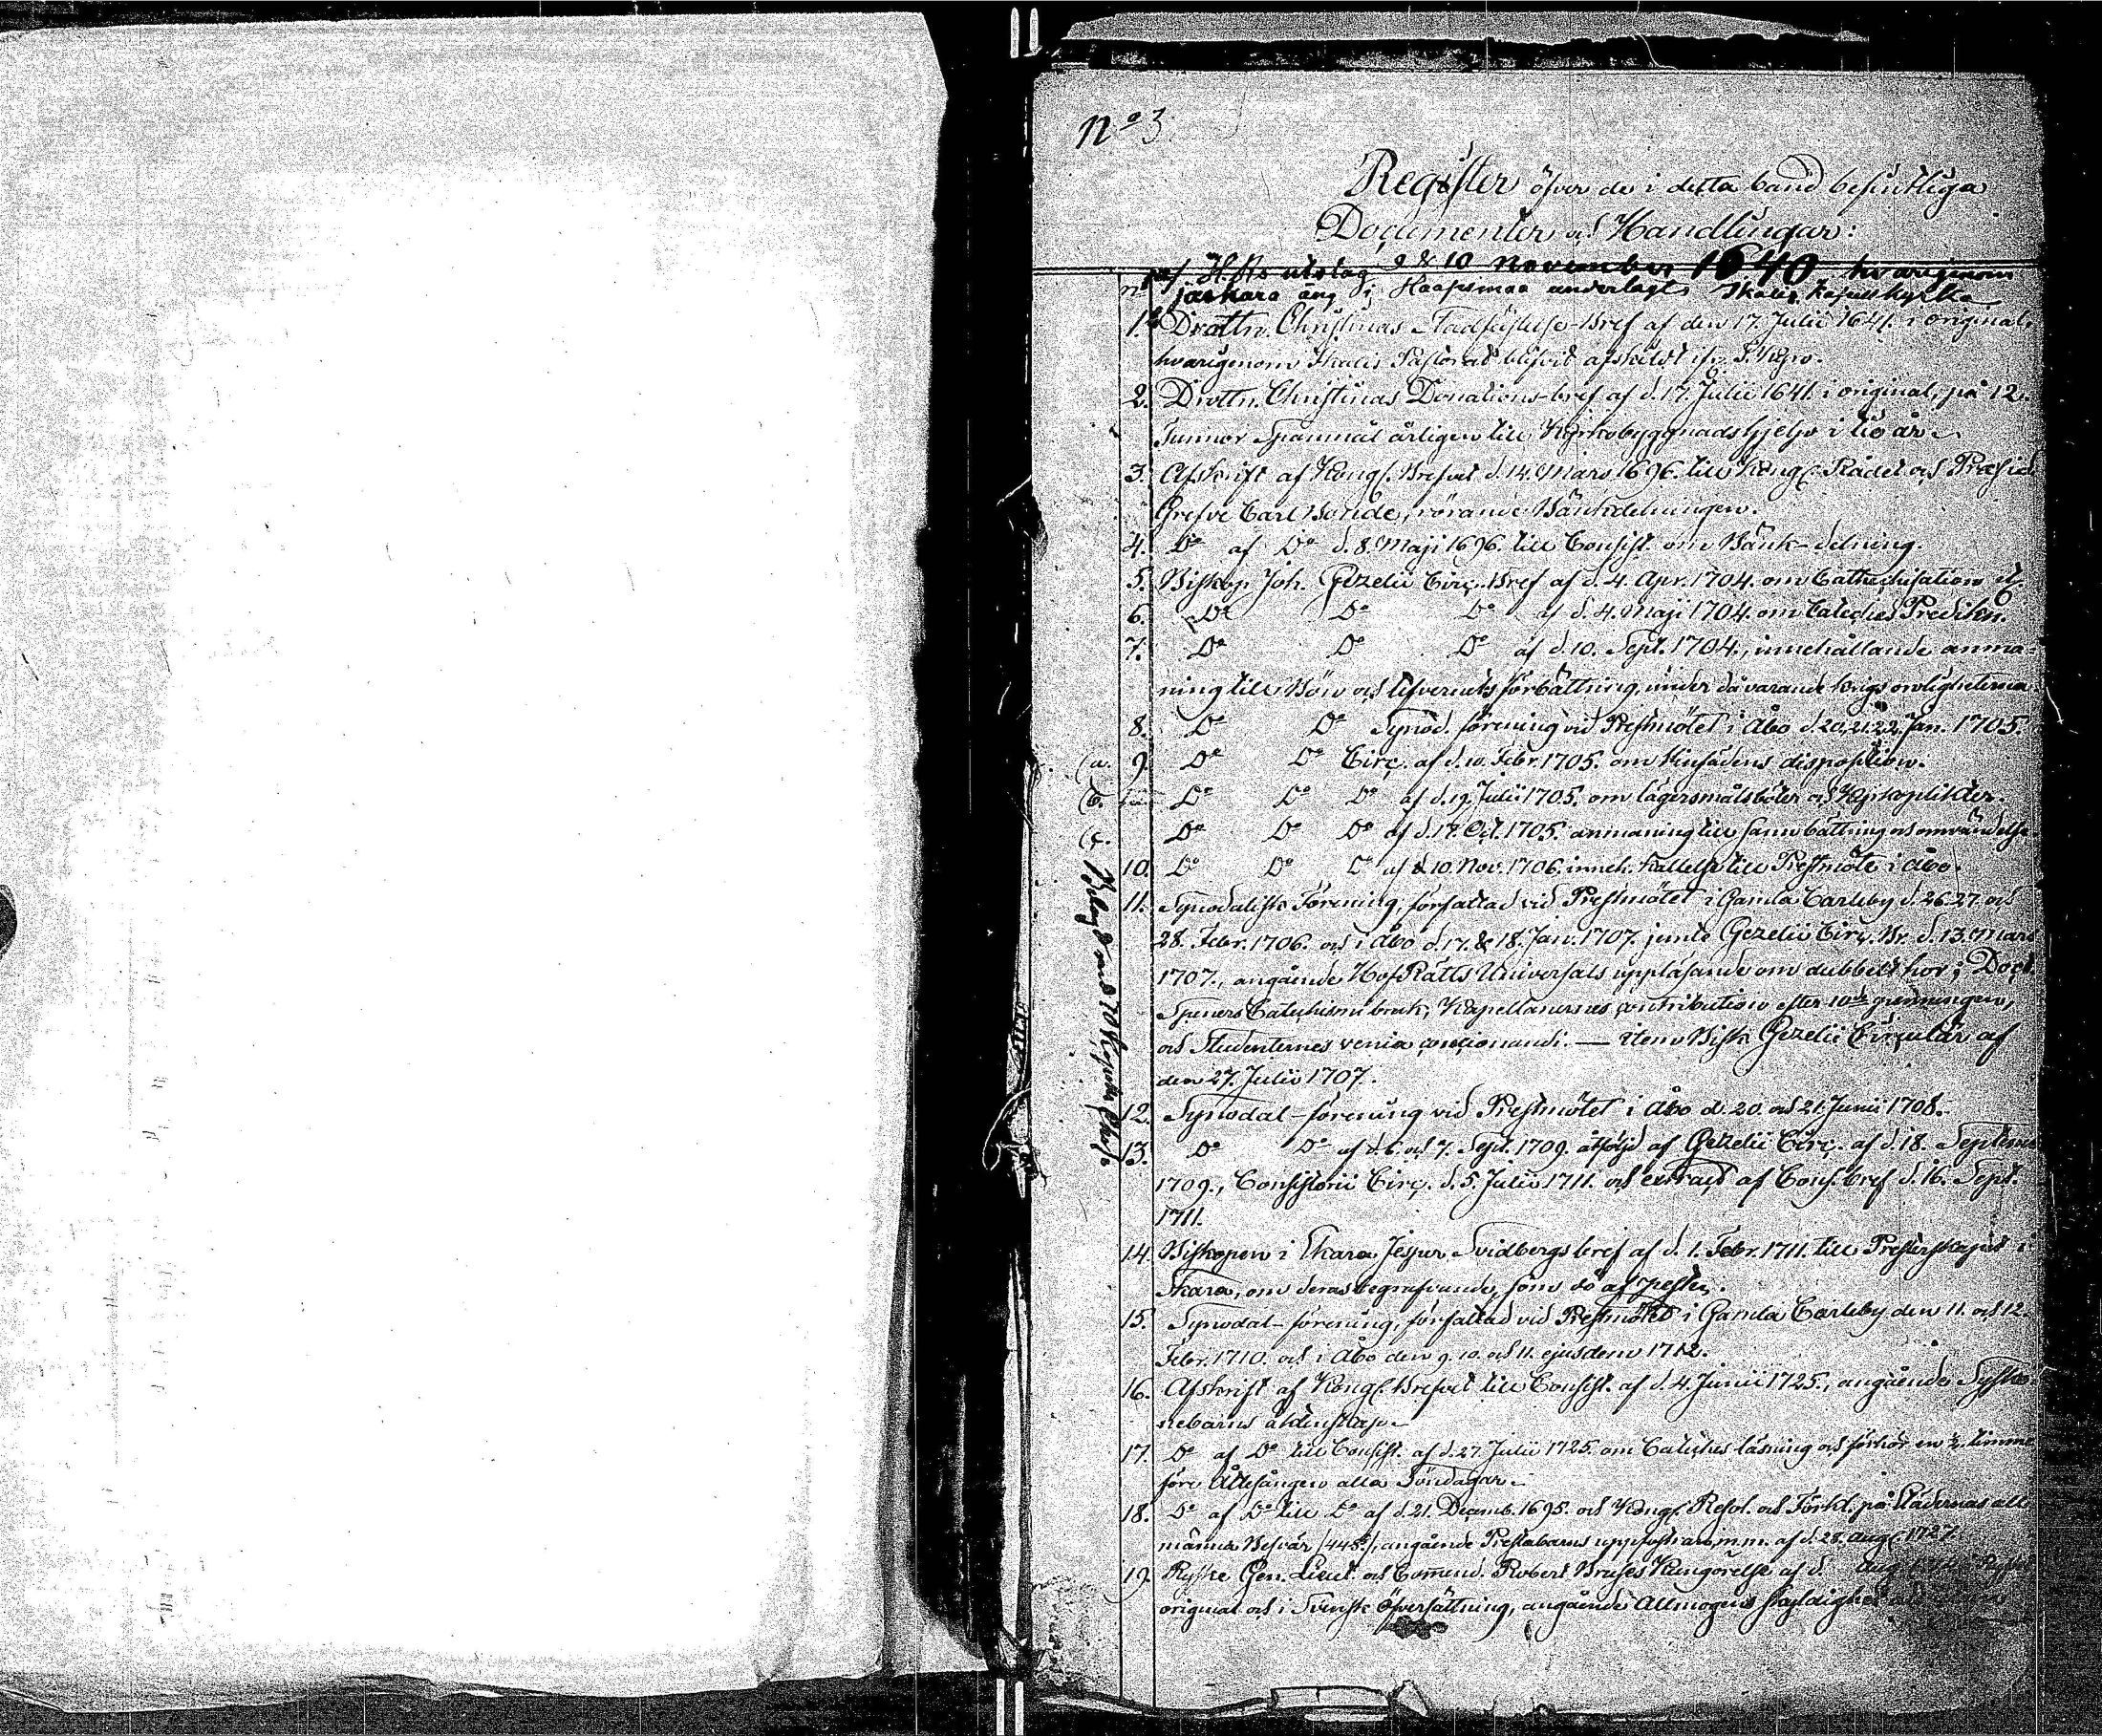 No 3
Register öfver de i detta band befintliga
Documenter och Handlingar:
af H. Rs utslag 9 & 10 November 1640 hvarigenom
jaskara äng i Haapimaa underlagts Ikalis kapellkyrka
1. Drottn. Christinas Stadfästelse-Bref af den 17. Julii 1641. i original,
hvarigenom Ikalis Pastorat blifvit afskildt ifr.
2. Drottn. Christinas Donations-bref af d. 17. Julii 1641. i original, på 12
Tunnor Spanmål årligen till Kyrkobyggnadshjelp i tio år.
3. Afskrift af Kongl. Brefvet d. 14. Mars 1696. till Kongl. Rådet och Præsid.
Grefve Carl Bonde, rörande Bänkdelningen.
4. Do af Do d. 8. Maji 1696. till Consist. om Bänk-delning.
5. Biskop Joh. Gezelii Circ. Bref af d. 4. Apr. 1704. om Cathechisation
6. Do Do Do af d. 4. Maji 1704. om Cateches Predikn.
7. Do Do Do af d. 10. Sept. 1704., innehållande anma-
ning till Bön och lefvernets förbättring, under då varande krigs oroligheterna
8. Do Do Synod. förening vid Prestmötet i Åbo d. 20, 21, 22. Jan. 1705.
(a. 9. Do Do Circ. af d. 10. Febr. 1705. om disposition.
(b. Do Do Do af d. 19. Julii 1705. om lägersmålsböter och
(c. Do Do Do af d. 17. Oct. 1705. anmaning till sann bättring och omvändelse
10. Do Do Do af d. 10. Nov. 1706. inneh. kallelse till Prestmöte i Åbo
11. Synodalisk Förening, författad vid Prestmötet i Gamla Carleby d. 26. 27. och
28. Febr. 1706. och i Åbo d. 17. & 18. Jan. 1707. jemte Gezelii Circ. Br. d. 13. Mars
1707., angående HofRätts Universals uppläsande om dubbelt hor; Doct.
Speners Catechismi bruk; Kapellanernes contribution efter
och Studenternes venia concionandi. — item Bisk. Gezelii Circulär af
den 27. Julii 1707.
12. Synodal-förening vid Prestmötet i Åbo d. 20. och 21. Junii 1708.
13. Do Do af d. 6. och 7. Sept. 1709. åtföljd af Gezelii Circ. af d. 18. Septemb.
1709., Consistorii Circ. d. 5. Julii 1711. och extract af Cons. bref d. 16. Sept.
1711.
14. Biskopen i Skara Jesper Svidbergs bref af d. 1. Febr. 1711. till Presterskapet i
Skara, om deras begrafvande, som dö af pesten.
15. Synodal-förening, författad vid Prestmötet i Gamla Carleby den 11. och 12.
Febr. 1710. och i Åbo den 9. 10. och 11. ejusdem 1712.
16. Afskrift af Kongl. Brefvet till Consist. af d. 4. Junii 1725., angående Sysko-
nebarns äktenskap.
17. Do af Do till Consist. af d. 27. Julii 1725. om Cateches läsning och förhör en ½ timme
före Ottesången alla Söndagar.
18. Do af Do till Do af d. 21. Decemb. 1695. och Kongl. Resol. och Förkl. på Städernas all-
männa Besvär /44§./, angående Prestabarns uppfostran m.m. af d. 28. Aug. 1727.
19. Ryske Gen. Lieut. och Commend. Robert Bruses Kungörelse af d. Aug.
original och i Svensk öfversättning, angående Allmogens skyldighet